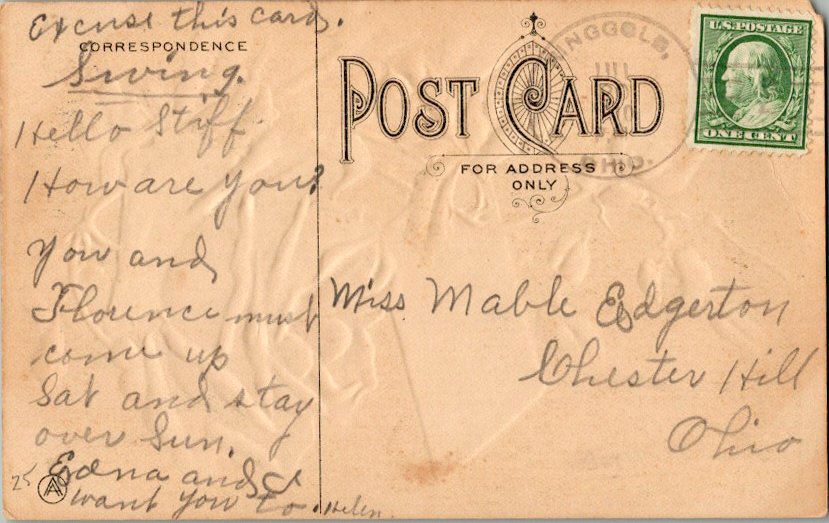 Excuse this card.
CORRESPONDENCE
Hello Stiff.
How are you?
You and
Florence must
come up
Sat and stay
over Sun.
Edna and I
want you to. Helen.
25
POST CARD
FOR ADDRESS
ONLY
OHIO.
U.S. POSTAGE
ONE CENT
Miss Mable Edgerton
Chester Hill
Ohio